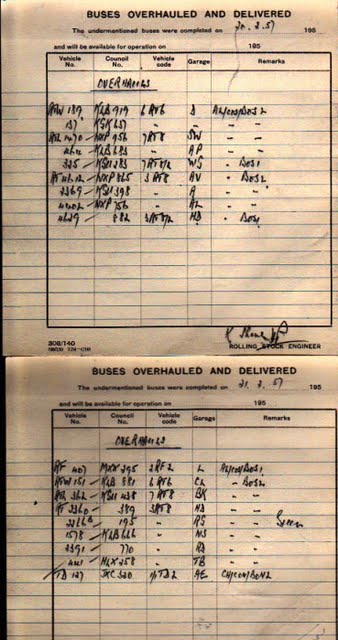 BUSES OVERHAULED AND DELIVERED
The undermentioned buses were completed on 20.2.57 195
and will be available for operation on 195
Vehicle No. Council No. Vehicle code Garage Remarks
OVERHAULS
RTW 189 KLB 919 6RT6
137 KGK 637 " "
RTL 1470 NXP 956 7RT8 SW " "
KLB 683 AP " "
325 KGU 283 7RT8/2 WS " BOS1
NXP 865 3RT8 AV " BOS2
2269 KGU 398 A " "
4402 NXP 756 AL " "
4629 882 3RT8/2 HD " BOS1
ROLLING STOCK ENGINEER
308/140
BUSES OVERHAULED AND DELIVERED
The undermentioned buses were completed on 21.2.57 195
and will be available for operation on 195
Vehicle No. Council No. Vehicle code Garage Remarks
OVERHAULS
RF 407 MXX 295 2RF2 L
RTW 151 KLB 881 6RT6 CL " BOS2
RTL 362 KGU 438 7RT8 BK " "
RT 2260 389 3RT8 HD " "
2266 195 RS " " Green
1578 KLB 646 NS " "
2391 770 RD " "
HLX 258 TB " "
TD 127 JXC 320 1/1TD2 AE